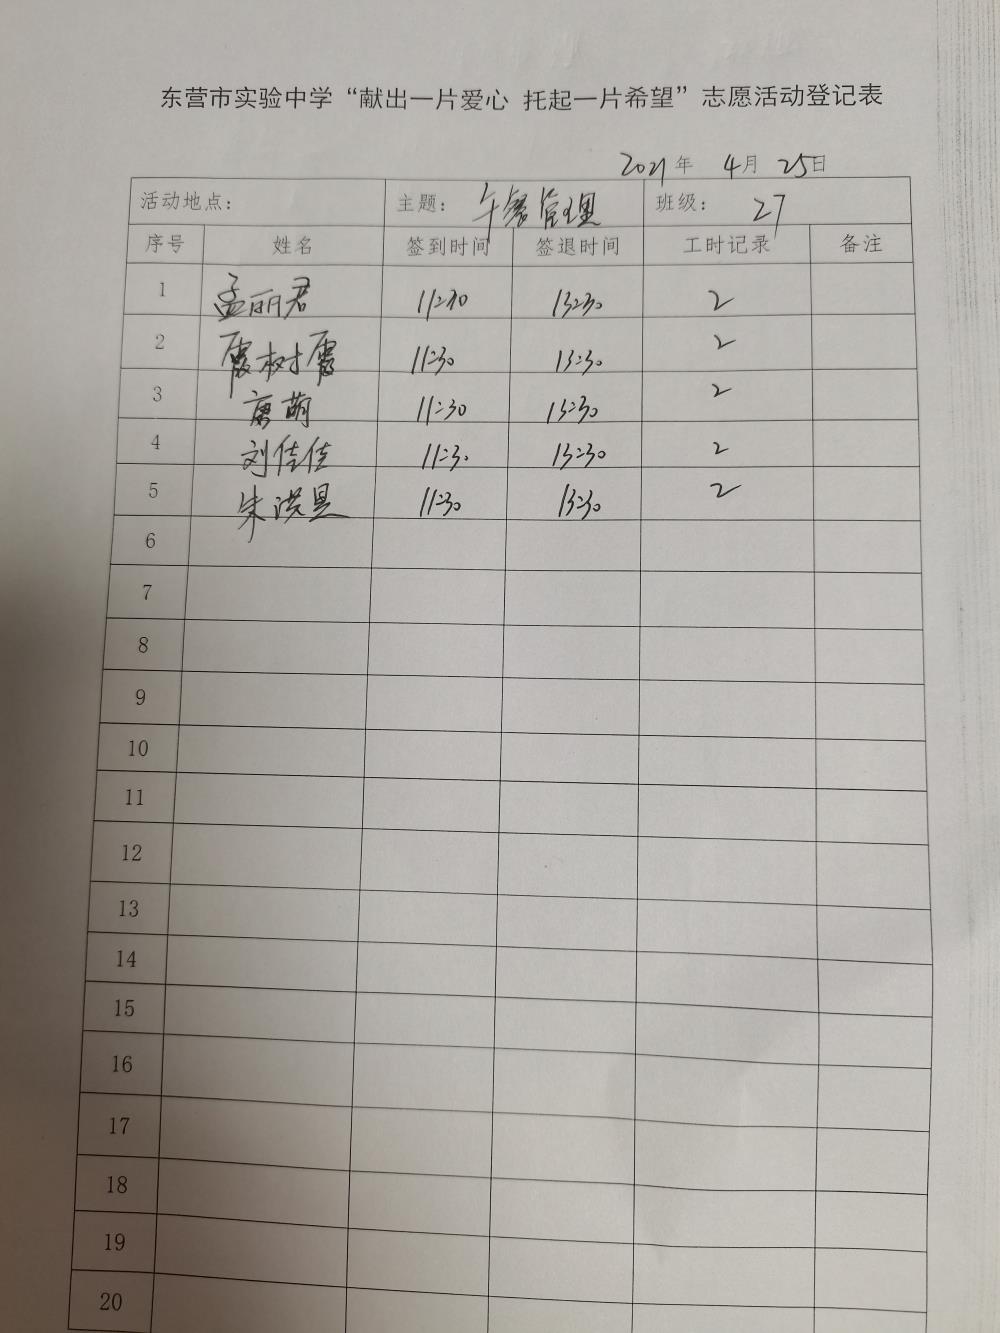 东营市实验中学“献出一片爱心 托起一片希望”志愿活动登记表
2021年 4月 25日
活动地点： 主题：午餐管理 班级：27
序号 姓名 签到时间 签退时间 工时记录 备注
1 孟丽君 11:30 13:30 2
2 树 11:30 13:30 2
3 唐萌 11:30 13:30 2
4 刘佳佳 11:30 13:30 2
5 朱洪昱 11:30 13:30 2
6
7
8
9
10
11
12
13
14
15
16
17
18
19
20